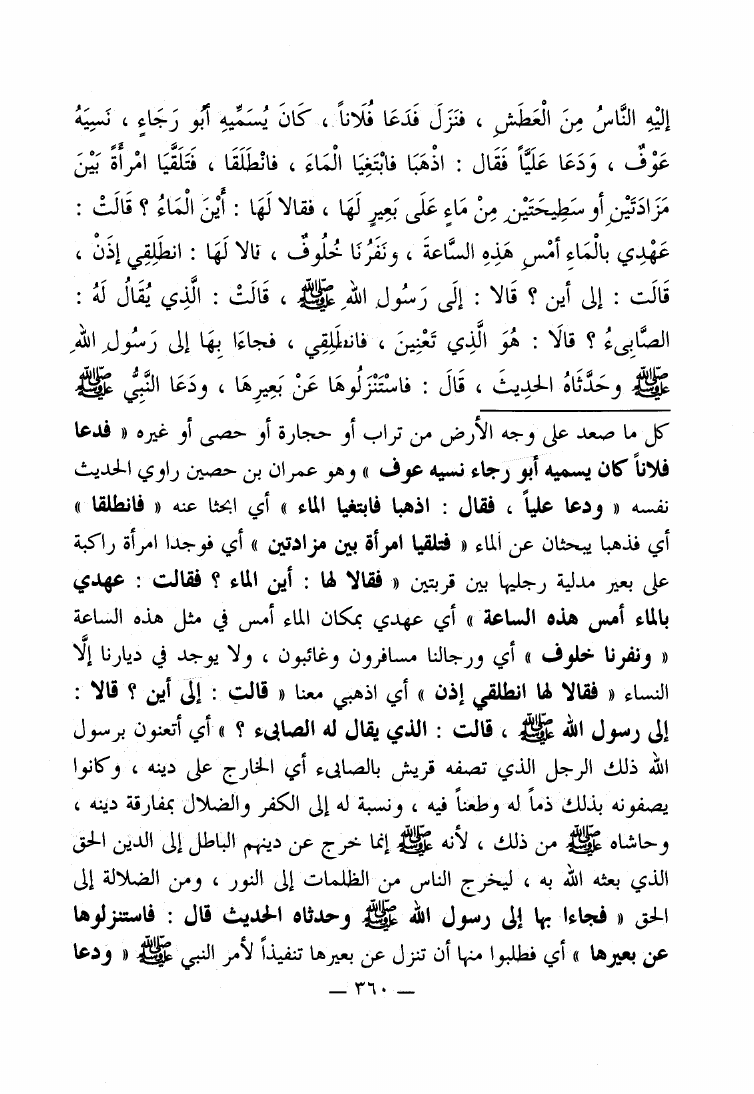 إلَيْهِ النَّاسُ مِنَ الْعَطَشِ ، فَنَزَلَ فَدَعَا فُلَاناً ، كَانَ يُسَمِّيهِ أبُو رَجَاءٍ ، نَسِيَهُ
عَوْفٌ ، وَدَعَا عَلَيَّاً فَقَال : اذْهَبَا فابْتَغِيَا الْمَاءَ ، فانْطَلَقَا ، فَتَلَقَّيَا امْرأَةً بَيْنَ
مَزَادَتَيْنِ أو سَطِيحَتَيْنِ مِنْ مَاءٍ عَلَى بَعِيرٍ لَهَا ، فقالا لَهَا : أَيْنَ الْمَاءُ ؟ قَالَتْ :
عَهْدِي بالْمَاءِ أمْسِ هَذِهِ السَّاعَةَ ، ونَفَرُنَا خُلُوفٌ ، قالا لَهَا : انطَلِقِي إذَنْ ،
قَالَت : إلى أين ؟ قَالا : إلَى رَسُولِ اللهِ ﷺ ، قَالَتْ : الَّذِي يُقَالُ لَهُ :
الصَّابِىءُ ؟ قالَا : هُوَ الَّذِي تَعْنِينَ ، فانطَلِقِي ، فجاءَا بِهَا إلى رَسُولِ اللهِ
ﷺ وحَدَّثَاهُ الحدِيثَ ، قَالَ : فاسْتَنْزَلُوهَا عَنْ بَعِيرِهَا ، ودَعَا النَّبِيُّ ﷺ
كل ما صعد على وجه الأرض من تراب أو حجارة أو حصى أو غيره « فدعا
فلاناً كان يسميه أبو رجاء نسيه عوف » وهو عمران بن حصين راوي الحديث
نفسه « ودعا علياً ، فقال : اذهبا فابتغيا الماء » أي ابحثا عنه « فانطلقا »
أي فذهبا يبحثان عن الماء « فتلقيا امرأة بين مزادتين » أي فوجدا امرأة راكبة
على بعير مدلية رجليها بين قربتين « فقالا لها : أين الماء ؟ فقالت : عهدي
بالماء أمس هذه الساعة » أي عهدي بمكان الماء أمس في مثل هذه الساعة
« ونفرنا خلوف » أي ورجالنا مسافرون وغائبون ، ولا يوجد في ديارنا إلَّا
النساء « فقالا لها انطلقي إذن » أي اذهبي معنا « قالت : إلى أين ؟ قالا :
إلى رسول الله ﷺ ، قالت : الذي يقال له الصابىء ؟ » أي أتعنون برسول
الله ذلك الرجل الذي تصفه قريش بالصابىء أي الخارج على دينه ، وكانوا
يصفونه بذلك ذماً له وطعناً فيه ، ونسبة له إلى الكفر والضلال بمفارقة دينه ،
وحاشاه ﷺ من ذلك ، لأنه ﷺ إنما خرج عن دينهم الباطل إلى الدين الحق
الذي بعثه الله به ، ليخرج الناس من الظلمات إلى النور ، ومن الضلالة إلى
الحق « فجاءا بها إلى رسول الله ﷺ وحدثاه الحديث قال : فاستنزلوها
عن بعيرها » أي فطلبوا منها أن تنزل عن بعيرها تنفيذاً لأمر النبي ﷺ « ودعا
— ٣٦٠ —